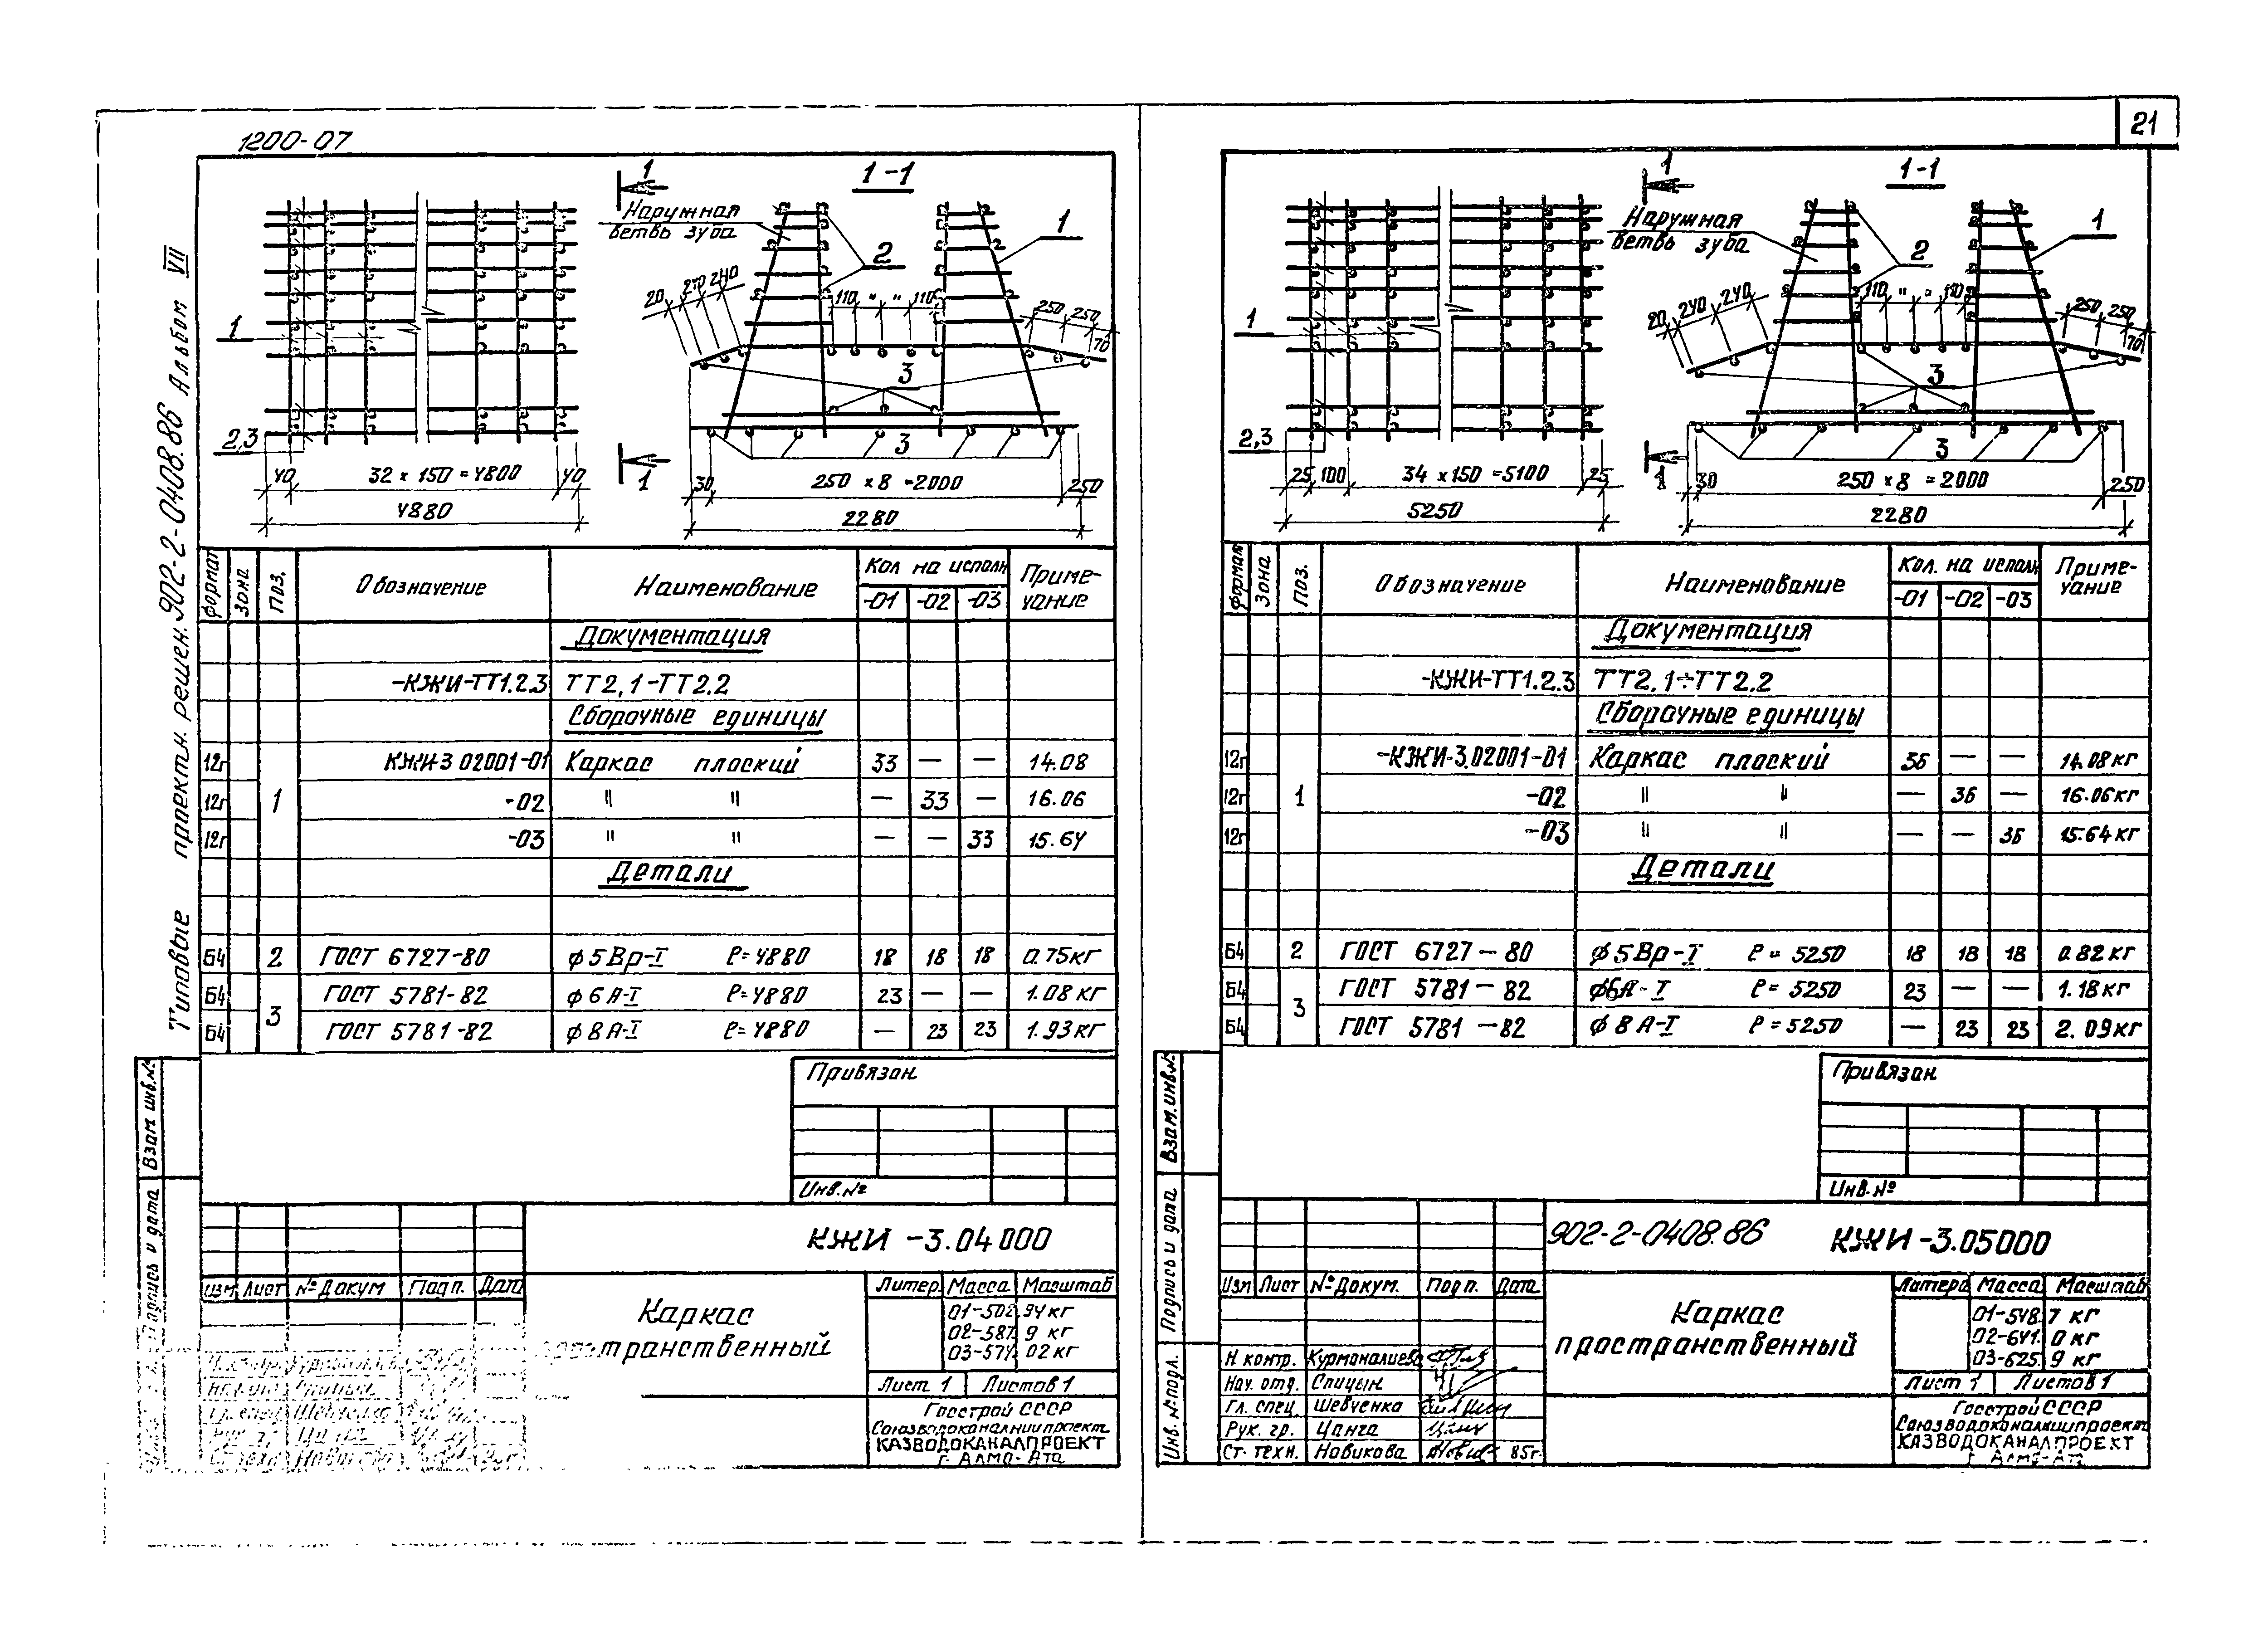 21
1200-07
Типовые проектн. решен. 902-2-0408.86 Альбом VII
1
1-1
Наружная
ветвь зуба
1
2
20 240 240
110 " " 110
250 250
70
1
3
2,3
3
40 32 × 150 = 4800 40
4880
1
30 250 × 8 =2000 250
2280
формат Зона Поз. Обозначение Наименование Кол на исполн Приме-
чание
-01 -02 -03
Документация
-КЖИ-ТТ1.2.3 ТТ2,1-ТТ2.2
Сборочные единицы
12г КЖИ-3 02001-01 Каркас плоский 33 — — 14.08
12г 1 -02 " " — 33 — 16.06
12г -03 " " — — 33 15.64
Детали
Б4 2 ГОСТ 6727-80 ф5Вр-I ℓ=4880 18 18 18 0.75кг
Б4 3 ГОСТ 5781-82 ф6А-I ℓ=4880 23 — — 1.08кг
Б4 ГОСТ 5781-82 ф8А-I ℓ=4880 — 23 23 1.93кг
Привязан
Инв.№
Взам инв.№
Подпись и дата
КЖИ -3.04000
Изм Лист № Докум Подп. Дата
Каркас
пространственный
Литер Масса Масштаб
01-502.94кг
02-587.9 кг
03-574.02кг
Лист 1 Листов 1
Госстрой СССР
Союзводоканалниипроект
КАЗВОДОКАНАЛПРОЕКТ
г. Алма-Ата
1
1-1
Наружная
ветвь зуба
1
2
20 240 240
110 " " 110
250 250
70
1
3
2,3
3
25 100 34 × 150 =5100 25
5250
1
30 250 × 8 = 2000 250
2280
формат Зона Поз. Обозначение Наименование Кол. на исполн Приме-
чание
-01 -02 -03
Документация
-КЖИ-ТТ1.2.3 ТТ2.1÷ТТ2.2
Сборочные единицы
12г -КЖИ-3.02001-01 Каркас плоский 36 — — 14.08кг
12г 1 -02 " " — 36 — 16.06кг
12г -03 " " — — 36 15.64кг
Детали
Б4 2 ГОСТ 6727-80 ф5Вр-I ℓ= 5250 18 18 18 0.82кг
Б4 3 ГОСТ 5781-82 ф6А-I ℓ= 5250 23 — — 1.18кг
Б4 ГОСТ 5781-82 ф8А-I ℓ=5250 — 23 23 2.09кг
Привязан
Инв.№
Взам.инв.№
Подпись и дата
Инв.№подл.
902-2-0408.86 КЖИ-3.05000
Изм Лист № Докум. Подп. Дата
Каркас
пространственный
Литера Масса Масштаб
01-548.7 кг
02-641.0 кг
03-625.9 кг
Лист 1 Листов 1
Н контр. Курманалиева
Нач. отд. Спицын
Гл. спец. Шевченко
Рук. гр. Цанга
Ст. техн. Новикова 85г.
Госстрой СССР
Союзводоканалниипроект
КАЗВОДОКАНАЛПРОЕКТ
г. Алма-Ата